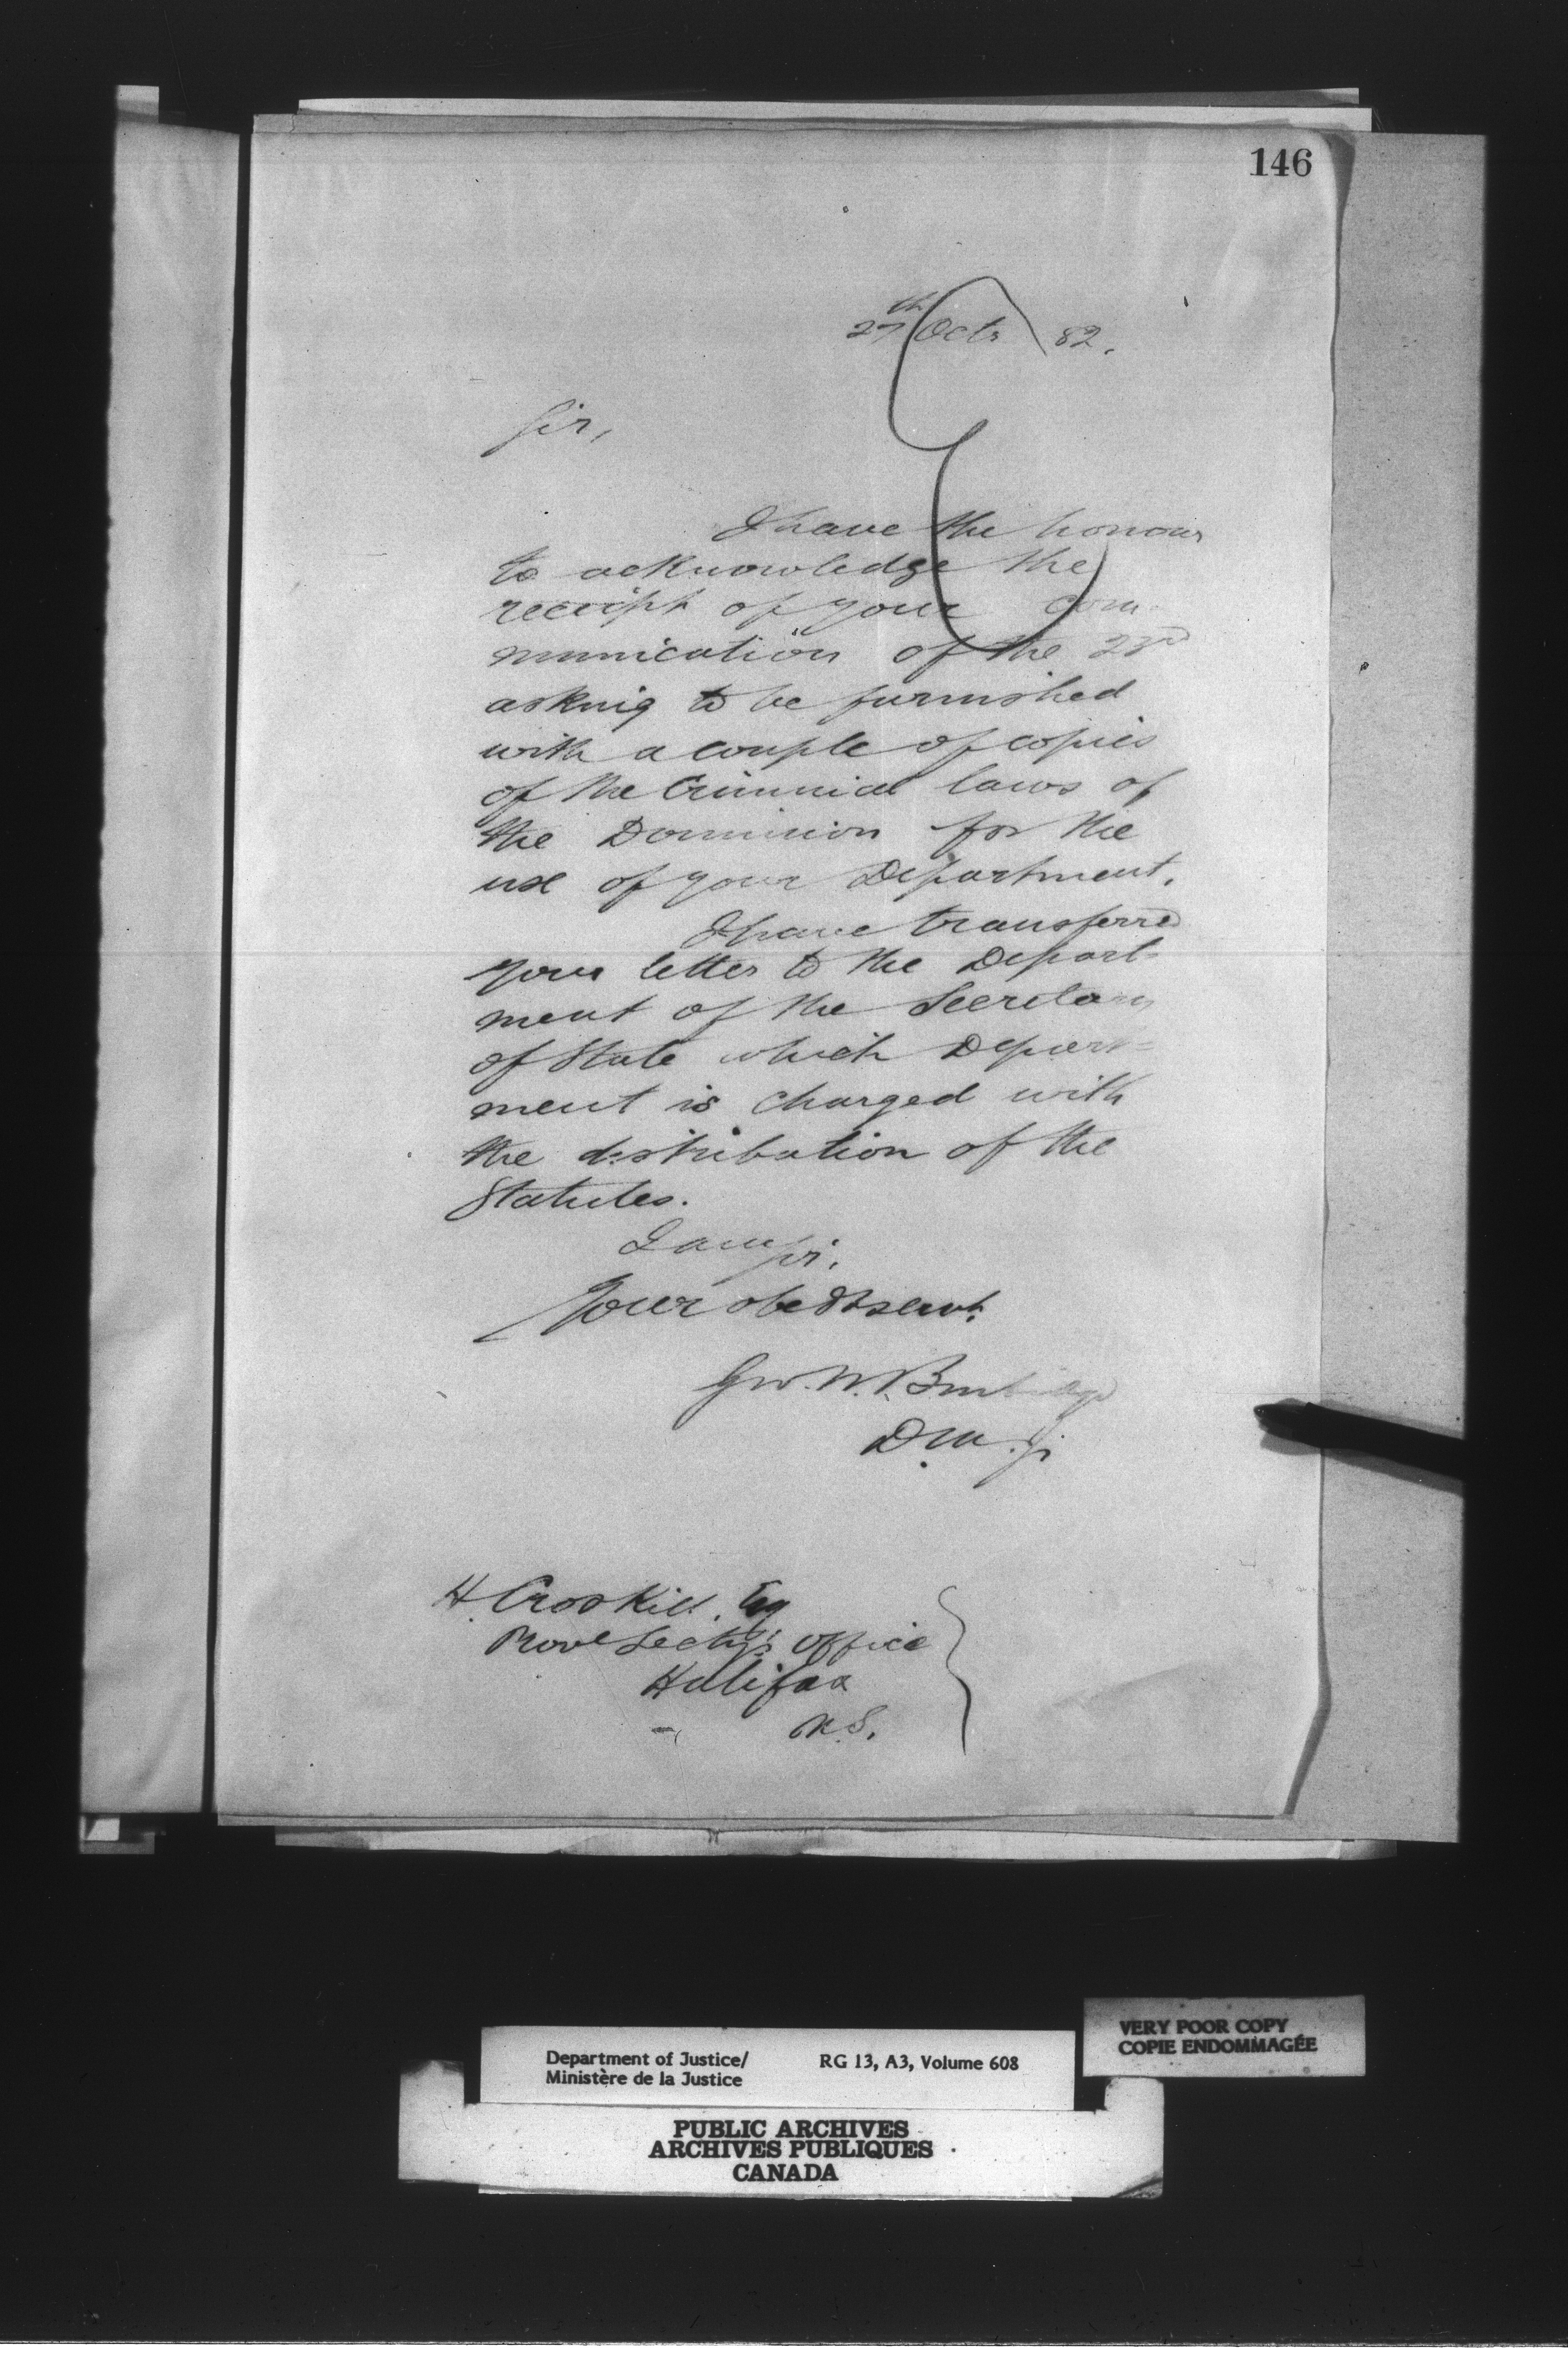 146
27th Octr 82.
Sir,
I have the honour
to acknowledge the
receipt of your com-
munication of the 23rd
asking to be furnished
with a couple of copies
of the Criminal laws of
the Dominion for the
use of your Department.
I have transferred
your letter to the Depart-
ment of the Secretary
of State which Depart=
ment is charged with
the distribution of the
Statutes.
I am Sir,
Your obedt servt.
Geo. W. Burbidge
D.M.J.
H. Crosskill Esq
Provl Secty's Office
Halifax
N.S.
VERY POOR COPY
COPIE ENDOMMAGÉE
Department of Justice/ RG 13, A3, Volume 608
Ministère de la Justice
PUBLIC ARCHIVES
ARCHIVES PUBLIQUES
CANADA